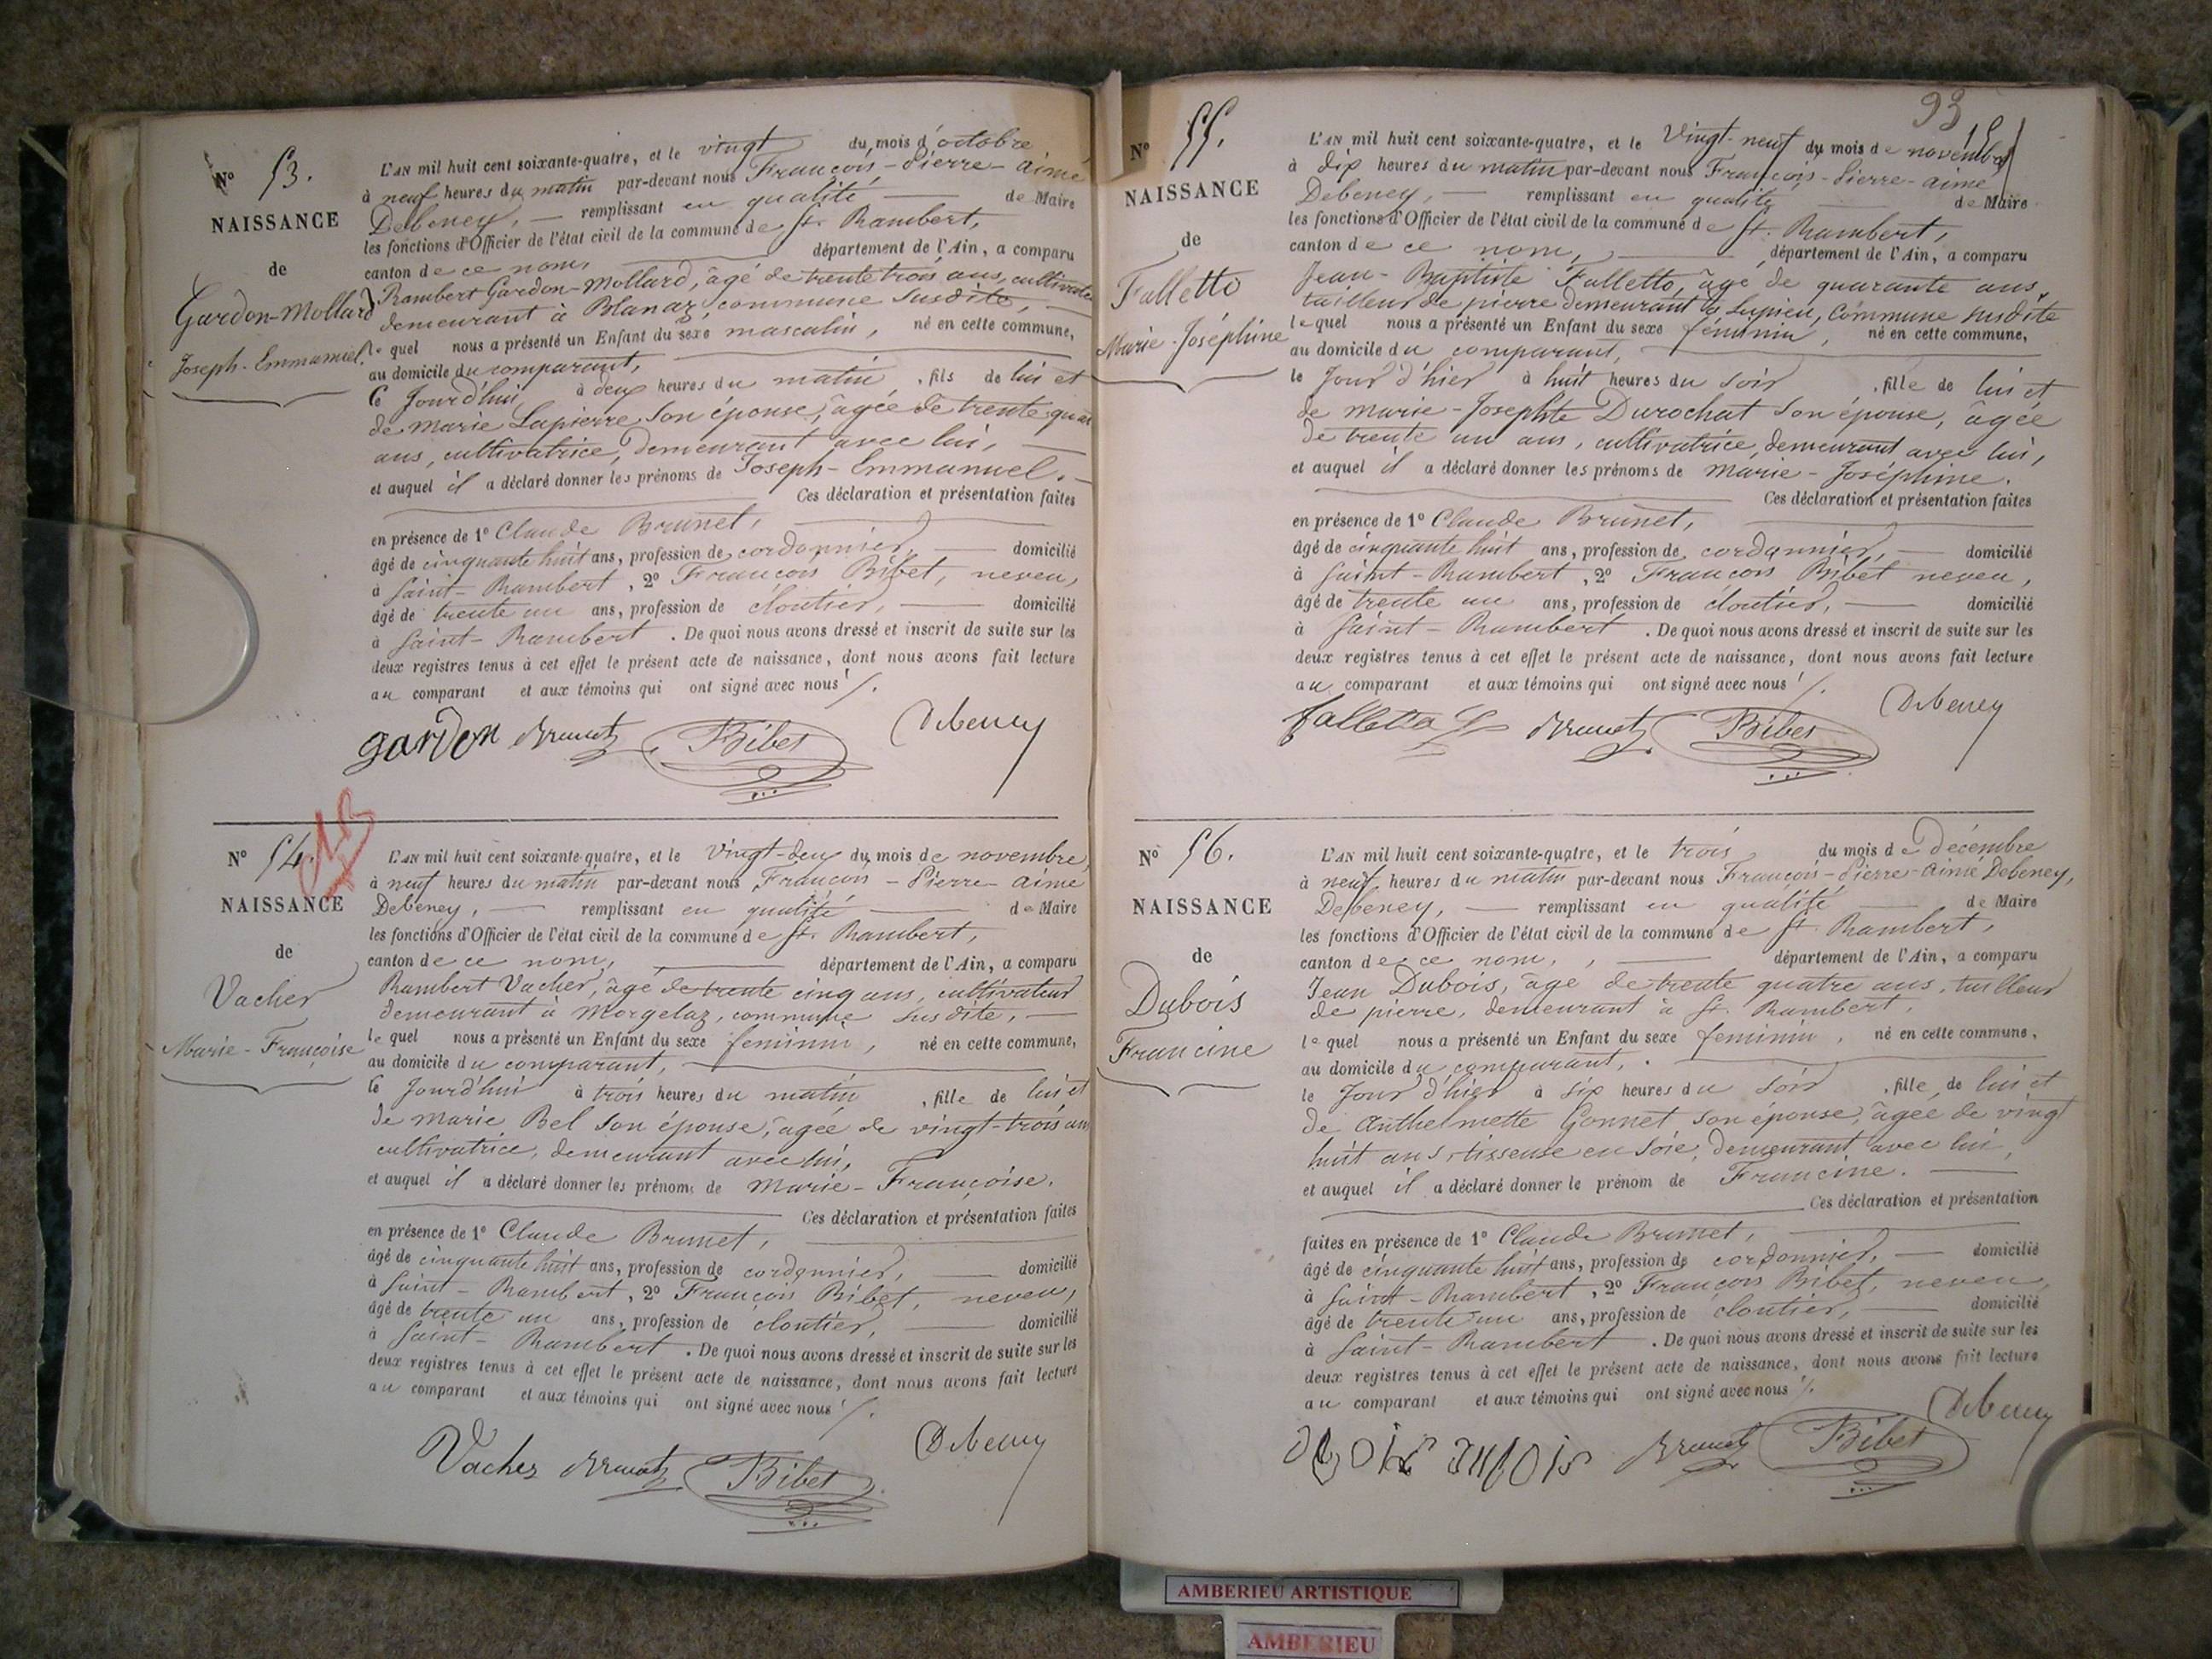 N° 53.
NAISSANCE
de
Gardon-Mollard
Joseph-Emmanuel.
L'AN mil huit cent soixante-quatre, et le vingt du mois d'octobre
à neuf heures du matin par-devant nous François-Pierre-aimé
Debeney, remplissant en qualité de Maire
les fonctions d'Officier de l'état civil de la commune de St. Rambert,
canton de ce nom, département de l'Ain, a comparu
Rambert Gardon-Mollard, âgé de trente trois ans, cultivateur
demeurant à Blanaz, commune susdite,
lequel nous a présenté un Enfant du sexe masculin, né en cette commune,
au domicile du comparant,
Ce Jourd'hui à deux heures du matin, fils de lui et
de marie Lapierre son épouse, âgée de trente quat
ans, cultivatrice, demeurant avec lui,
et auquel il a déclaré donner les prénoms de Joseph-Emmanuel.
Ces déclaration et présentation faites
en présence de 1° Claude Brunet,
âgé de cinquante huit ans, profession de cordonnier, domicilié
à Saint-Rambert, 2° François Bibet, neveu,
âgé de trente un ans, profession de cloutier, domicilié
à Saint-Rambert. De quoi nous avons dressé et inscrit de suite sur les
deux registres tenus à cet effet le présent acte de naissance, dont nous avons fait lecture
au comparant et aux témoins qui ont signé avec nous ./.
gardon Brunet Bibet Debeney
N° 54.
NAISSANCE
de
Vacher
Marie-Françoise
L'AN mil huit cent soixante-quatre, et le Vingt-deux du mois de novembre,
à neuf heures du matin par-devant nous François-Pierre-aimé
Debeney, remplissant en qualité de Maire
les fonctions d'Officier de l'état civil de la commune de St. Rambert,
canton de ce nom, département de l'Ain, a comparu
Rambert Vacher, âgé de trente cinq ans, cultivateur
demeurant à Morgelaz, commune susdite,
lequel nous a présenté un Enfant du sexe feminin, né en cette commune,
au domicile du comparant,
Ce Jourd'hui à trois heures du matin, fille de lui et
de marie Bel son épouse, âgée de vingt-trois ans
cultivatrice, demeurant avec lui,
et auquel il a déclaré donner les prénoms de Marie-Françoise.
Ces déclaration et présentation faites
en présence de 1° Claude Brunet,
âgé de cinquante huit ans, profession de cordonnier, domicilié
à Saint-Rambert, 2° François Bibet, neveu,
âgé de trente un ans, profession de cloutier, domicilié
à Saint-Rambert. De quoi nous avons dressé et inscrit de suite sur les
deux registres tenus à cet effet le présent acte de naissance, dont nous avons fait lecture
au comparant et aux témoins qui ont signé avec nous ./.
Vacher Brunet Bibet Debeney
93
N° 55.
NAISSANCE
de
Falletto
Marie-Joséphine
L'AN mil huit cent soixante-quatre, et le Vingt-neuf du mois de novembre
à dix heures du matin par-devant nous François-Pierre-aimé
Debeney, remplissant en qualité de Maire
les fonctions d'Officier de l'état civil de la commune de St. Rambert,
canton de ce nom, département de l'Ain, a comparu
Jean-Baptiste Falletto, âgé de quarante ans,
tailleur de pierre demeurant à Lupieu, commune susdite
lequel nous a présenté un Enfant du sexe féminin, né en cette commune,
au domicile du comparant,
le Jour d'hier à huit heures du soir, fille de lui et
de marie-Josephte Durochat son épouse, âgée
de trente un ans, cultivatrice, demeurant avec lui,
et auquel il a déclaré donner les prénoms de Marie-Joséphine.
Ces déclaration et présentation faites
en présence de 1° Claude Brunet,
âgé de cinquante huit ans, profession de cordonnier, domicilié
à Saint-Rambert, 2° François Bibet neveu,
âgé de trente un ans, profession de cloutier, domicilié
à Saint-Rambert. De quoi nous avons dressé et inscrit de suite sur les
deux registres tenus à cet effet le présent acte de naissance, dont nous avons fait lecture
au comparant et aux témoins qui ont signé avec nous ./.
falletto Brunet Bibet Debeney
N° 56.
NAISSANCE
de
Dubois
Francine
L'AN mil huit cent soixante-quatre, et le trois du mois de décembre
à neuf heures du matin par-devant nous François-Pierre-aimé Debeney,
Debeney, remplissant en qualité de Maire
les fonctions d'Officier de l'état civil de la commune de St. Rambert,
canton de ce nom, département de l'Ain, a comparu
Jean Dubois, âgé de trente quatre ans, tailleur
de pierre, demeurant à St. Rambert,
lequel nous a présenté un Enfant du sexe feminin, né en cette commune,
au domicile du comparant,
le Jour d'hier à six heures du soir, fille de lui et
de Anthelmette Gonnet son épouse, âgée de vingt
huit ans, tisseuse en soie, demeurant avec lui,
et auquel il a déclaré donner le prénom de Francine.
Ces déclaration et présentation
faites en présence de 1° Claude Brunet,
âgé de cinquante huit ans, profession de cordonnier, domicilié
à Saint-Rambert, 2° François Bibet, neveu,
âgé de trente un ans, profession de cloutier, domicilié
à Saint-Rambert. De quoi nous avons dressé et inscrit de suite sur les
deux registres tenus à cet effet le présent acte de naissance, dont nous avons fait lecture
au comparant et aux témoins qui ont signé avec nous ./.
Brunet Bibet Debeney
AMBERIEU ARTISTIQUE
AMBERIEU